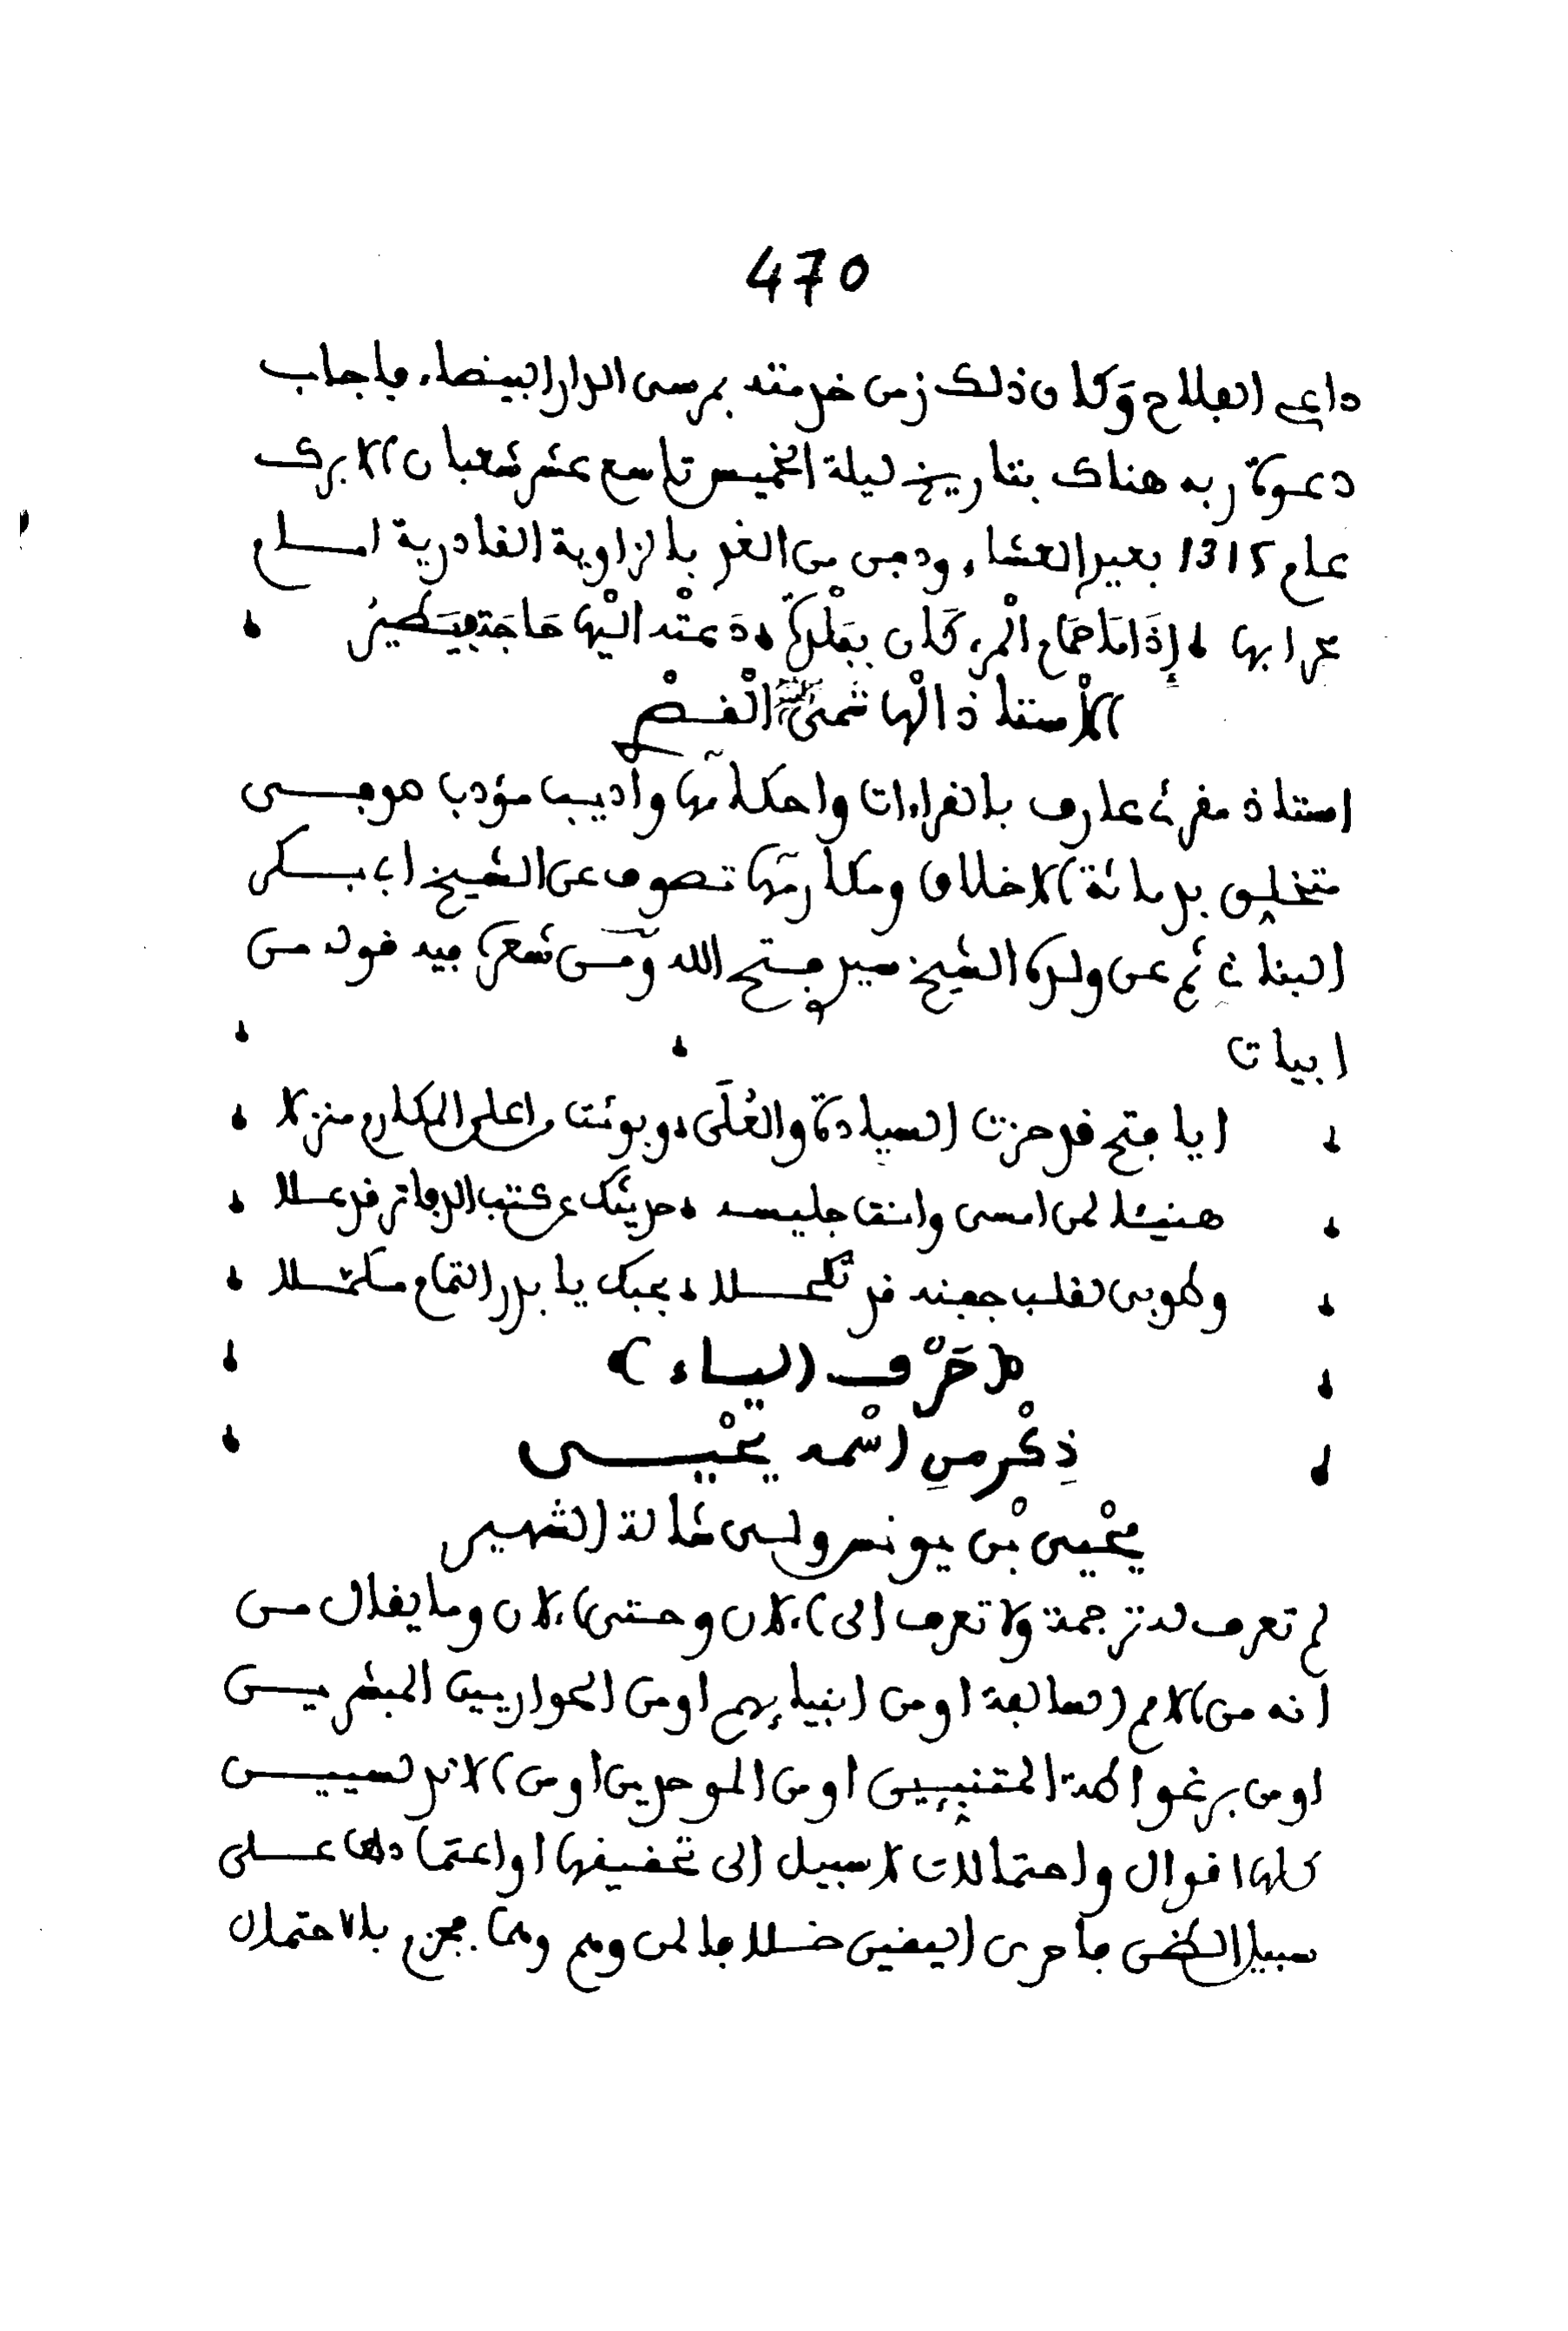 470
داعي الفلاح وَكان ذلك زمن خدمته بمرسى الدار البيضاء، فاجاب
دعوة ربه هناك بتاريخ ليلة الخميس تاسع عشر شعبان الابرك
عام 1315 بعيد العشاء، ودفن من الغد بالزاوية القادرية امام
محرابها إِذَا مَا حِمَام الْمرء كَان بِبَلْدَة دَعتْه الَيْها حَاجَة فيَطيرُ
الْأستاذ الْهاشمي الْقـصْـ
استاذ مقرئ عارف بالقراءات واحكامها وأديب مؤدب صوفـي
متخلق بدماثة الاخلاق ومكارمها تصوف عن الشيخ أبي بـكر
البناني ثم عن ولده الشيخ سيدي فتـح الله ومن شعره فيه قوله من
ابيات
ايا فتح قد حزت السيادة والعُلَى وبوئت من اعلى المكارم منزلا
هنيئا لمن امسى وانت جليسه حديثك عن كتب الدفاتر قد عـلا
وطوبى لقلب جفنه قد تكحـلا بحبك يا بدر التمام مكمـلا
﴿حَرْف اليـاء﴾
ذِكْر منِ اسْمه يحْيـى
يحْيى بْن يونس ولـي شالة الشهير
لم تعرف له ترجمة ولا تعرف الى الآن وحتى الآن وما يقال من
انه من الامم السالفة او من انبيائهم او من الحواريين المبشريـن
او من برغواطة المتنبئين او من الموحدين او من الاندلسييـن
كلها اقوال واحتمالات لا سبيل الى تحقيقها او اعتمادها عـلى
سبيل الظن فاحرى اليقين خـلافا لمن وهم وهما فجزم بالاحتمال